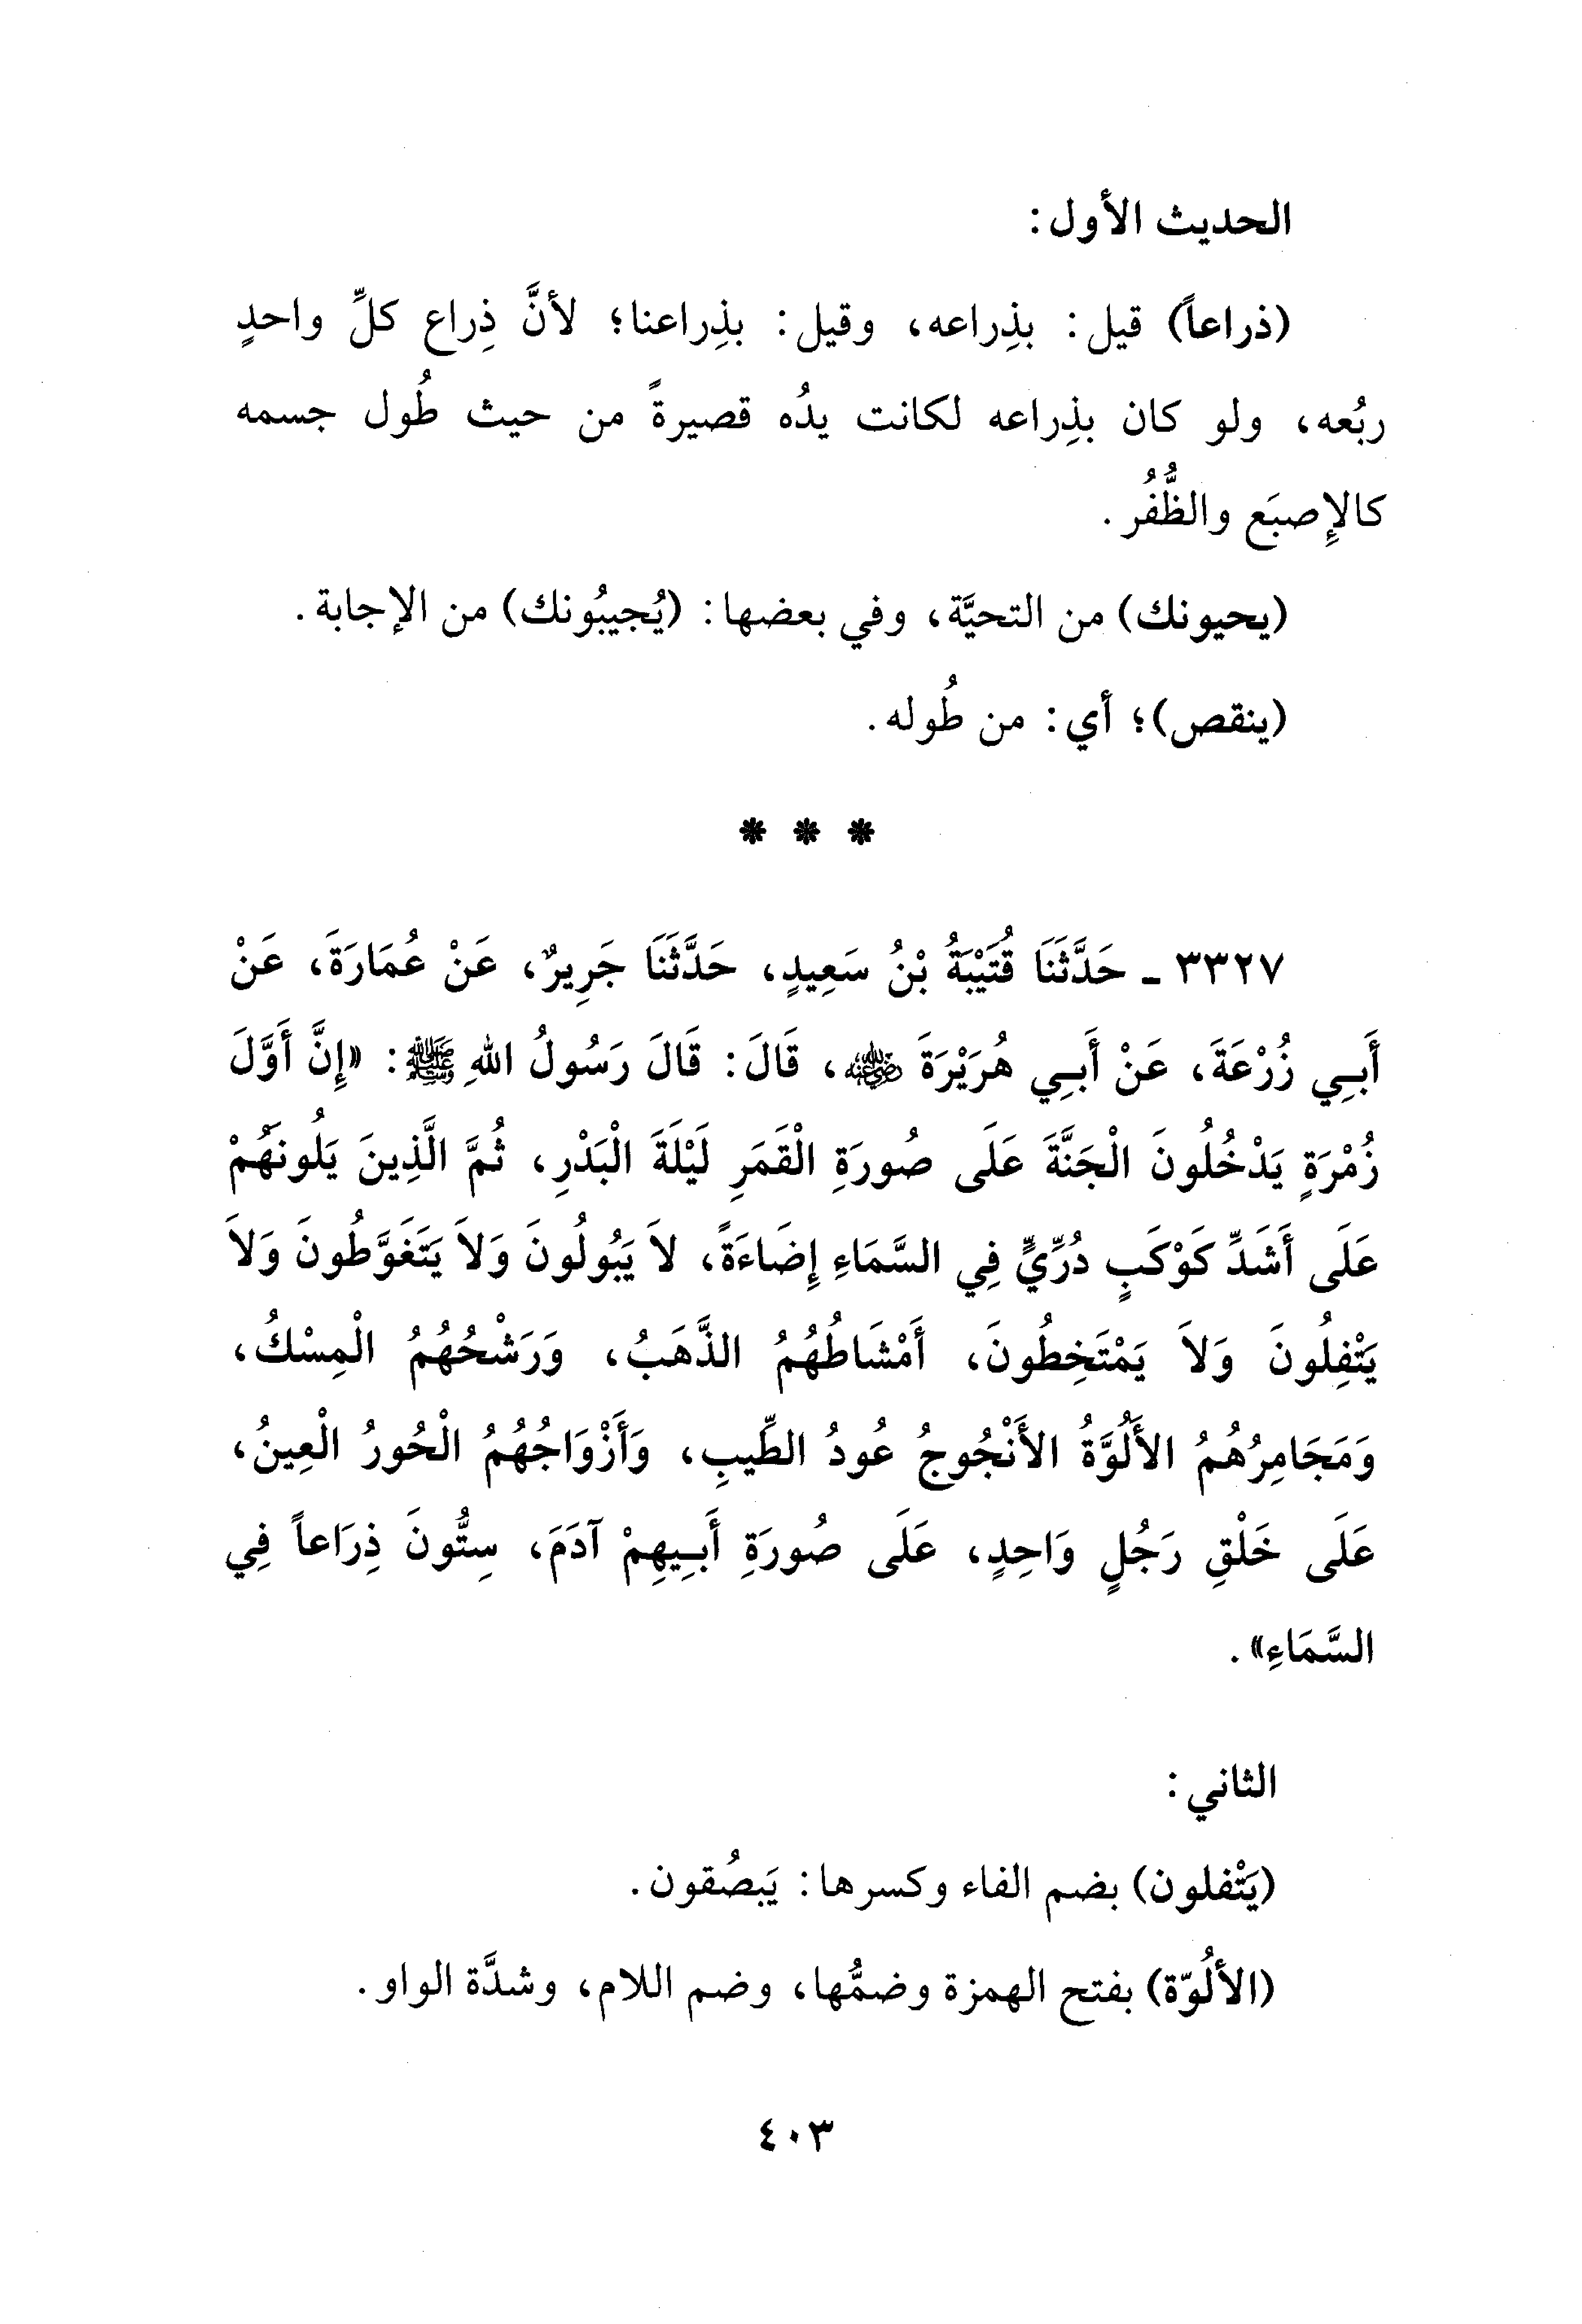 الحديث الأول:
(ذراعاً) قيل: بذِراعه، وقيل: بذِراعنا؛ لأنَّ ذِراع كلِّ واحدٍ
ربُعه، ولو كان بذِراعه لكانت يدُه قصيرةً من حيث طُول جسمه
كالإِصبَع والظُّفُر.
(يحيونك) من التحيَّة، وفي بعضها: (يُجيبُونك) من الإجابة.
(ينقص)؛ أي: من طُوله.
* * *
٣٣٢٧ ـ حَدَّثَنَا قُتَيْبَةُ بْنُ سَعِيدٍ، حَدَّثَنَا جَرِيرٌ، عَنْ عُمَارَةَ، عَنْ
أَبِي زُرْعَةَ، عَنْ أَبِي هُرَيْرَةَ رضي الله عنه، قَالَ: قَالَ رَسُولُ اللهِ ﷺ: «إِنَّ أَوَّلَ
زُمْرَةٍ يَدْخُلُونَ الْجَنَّةَ عَلَى صُورَةِ الْقَمَرِ لَيْلَةَ الْبَدْرِ، ثُمَّ الَّذِينَ يَلُونَهُمْ
عَلَى أَشَدِّ كَوْكَبٍ دُرِّيٍّ فِي السَّمَاءِ إِضَاءَةً، لاَ يَبُولُونَ وَلاَ يَتَغَوَّطُونَ وَلاَ
يَتْفِلُونَ وَلاَ يَمْتَخِطُونَ، أَمْشَاطُهُمُ الذَّهَبُ، وَرَشْحُهُمُ الْمِسْكُ،
وَمَجَامِرُهُمُ الأَلُوَّةُ الأَنْجُوجُ عُودُ الطِّيبِ، وَأَزْوَاجُهُمُ الْحُورُ الْعِينُ،
عَلَى خَلْقِ رَجُلٍ وَاحِدٍ، عَلَى صُورَةِ أَبِيهِمْ آدَمَ، سِتُّونَ ذِرَاعاً فِي
السَّمَاءِ».
الثاني:
(يَتْفلون) بضم الفاء وكسرها: يَبصُقون.
(الألُوّة) بفتح الهمزة وضمُّها، وضم اللام، وشدَّة الواو.
٤٠٣